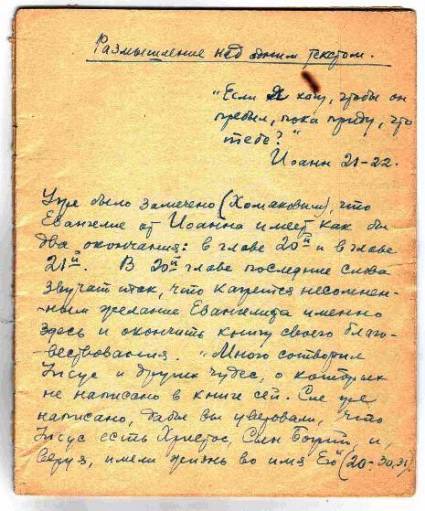 Размышление над одним текстом.
"Если Я хочу, чтобы он
пребыл, пока приду, что
тебе?"
Иоанн 21-22.
Уже было замечено (Хомяковым), что
Евангелие от Иоанна имеет как бы
два окончания: в главе 20й и в главе
21й. В 20й главе последние слова
звучат так, что кажется несомнен-
ным желание Евангелиста именно
здесь и окончить книгу своего благо-
вествования. "Много сотворил
Іисус и других чудес, о которых
не написано в книге сей. Сие же
написано, дабы вы уверовали, что
Іисус есть Христос, Сын Божий, и,
веруя, имели жизнь во имя Его (20-30,31)